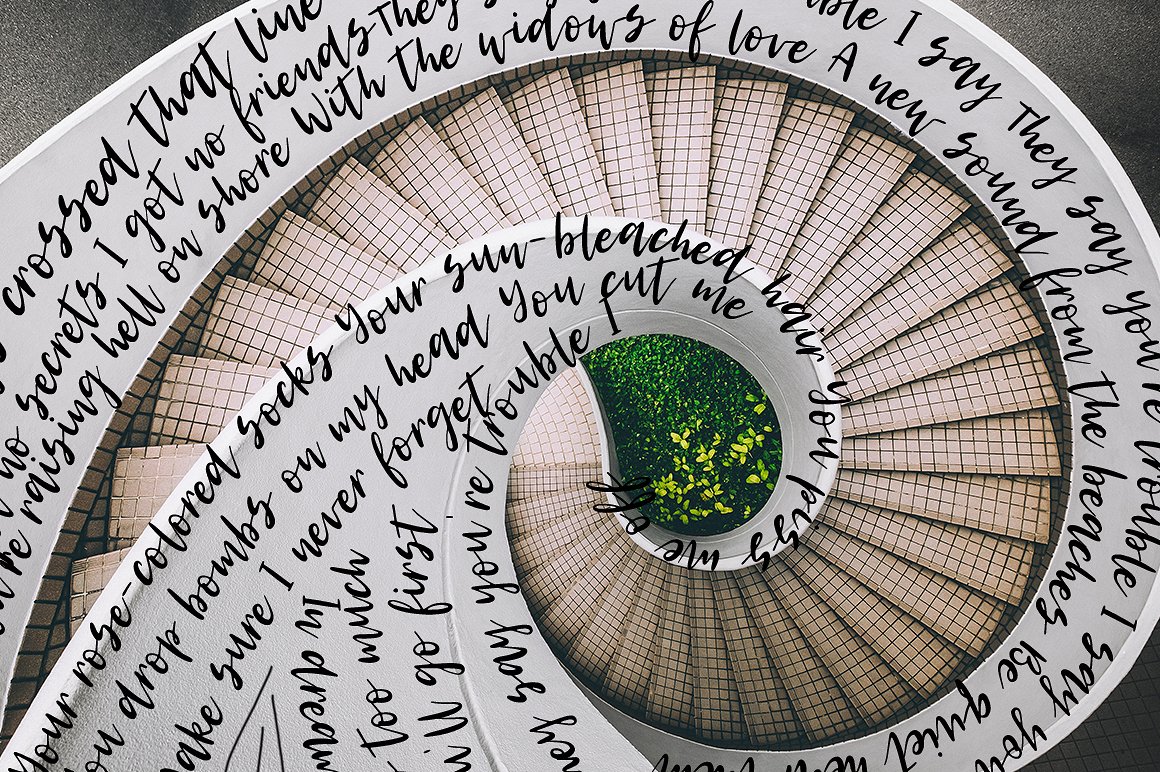 crossed that line
no secrets I got no friends They s
're raising hell on shore With the widows of love A new sound from the beaches Be quiet
ble I say They say you're trouble I say you
Your rose-colored socks Your sun-bleached hair You piss me off
you drop bombs on my head You cut me
make sure I never forget
They say you're trouble I
'll go first
too much